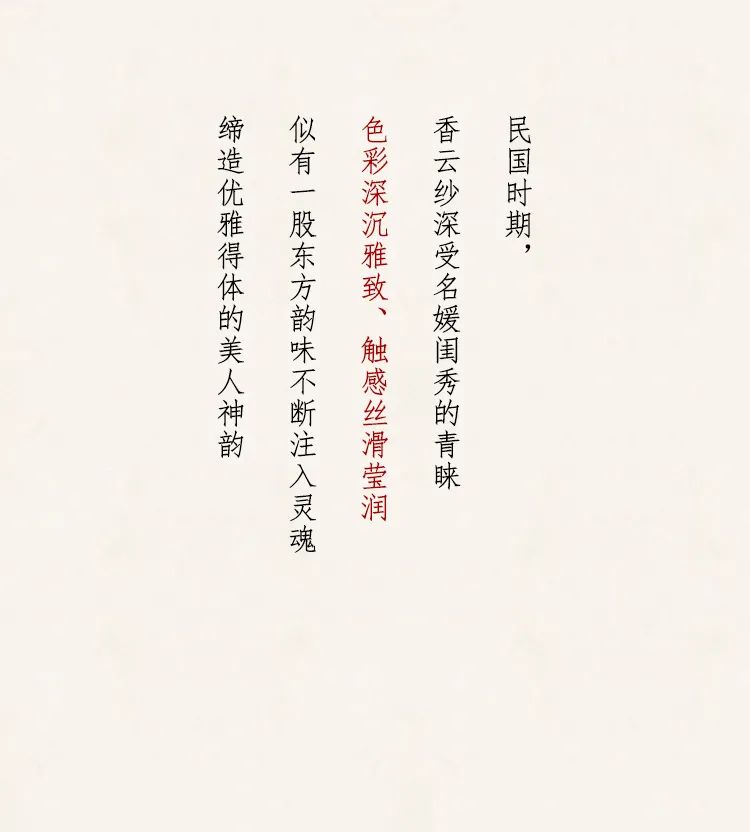 民国时期，
香云纱深受名媛闺秀的青睐
色彩深沉雅致、触感丝滑莹润
似有一股东方韵味不断注入灵魂
缔造优雅得体的美人神韵